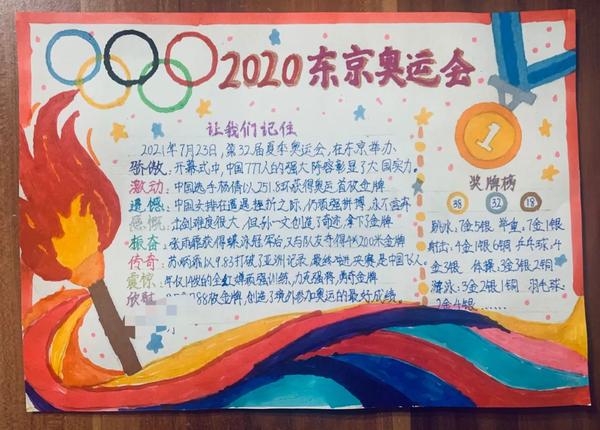 2020东京奥运会
让我们记住
2021年7月23日,第32届夏季奥运会,在东京举办.
骄傲:开幕式中,中国777人的强大阵容彰显了大国实力.
激动:中国选手杨倩以251.8环获得奥运首枚金牌
遗憾:中国女排在遭遇挫折之际,仍顽强拼搏,永不言弃
感慨:击剑难度很大,但孙一文创造了奇迹,拿下了金牌
振奋:张雨霏获得蝶泳冠军后,又与队友夺得4×200米金牌
传奇:苏炳添以9.83打破了亚洲记录,最终跑进决赛是中国飞人.
震惊:年仅14岁的全红婵顽强训练,力克强将,勇夺金牌
欣慰 88枚金牌,创造了境外参加奥运的最好成绩.
1
奖牌榜
38 32 18
跳水:7金5银 举重:7金1银
射击:4金1银6铜 乒乓球:4
金3银 体操:3金3银2铜
游泳:3金2银1铜 羽毛球:
2金4银......